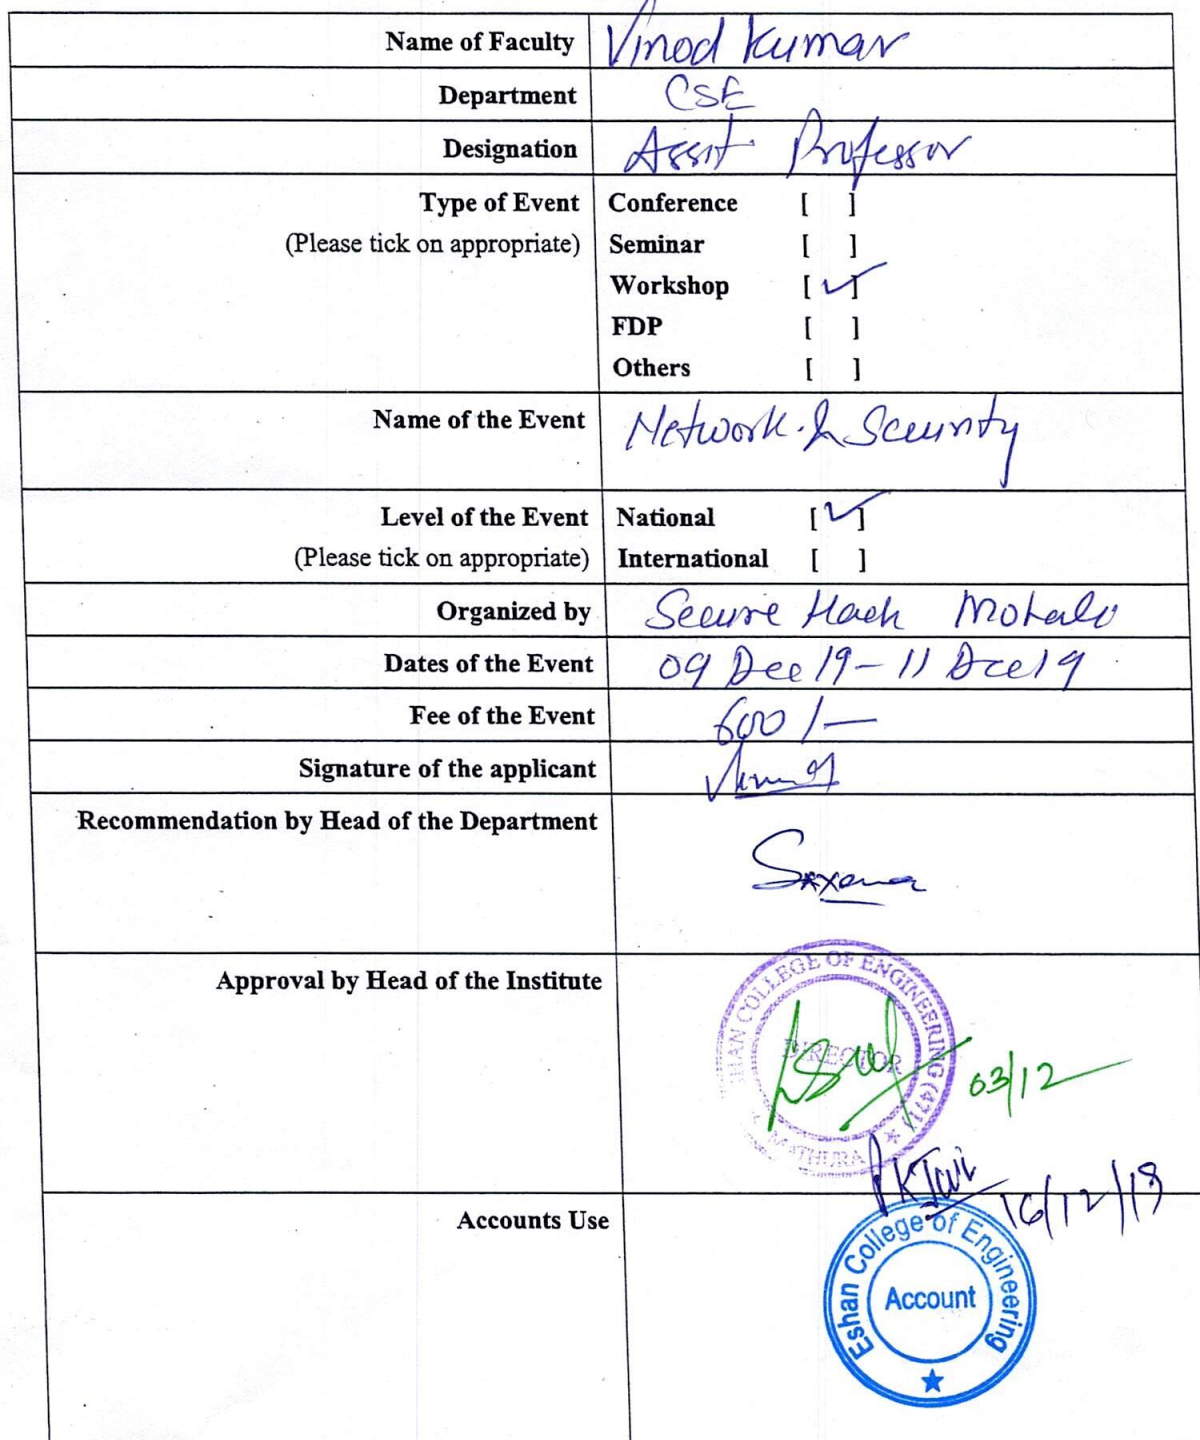 Name of Faculty Vinod Kumar
Department CSE
Designation Assit Professor
Type of Event Conference [ ]
(Please tick on appropriate) Seminar [ ]
Workshop [✓]
FDP [ ]
Others [ ]
Name of the Event Network & Security
Level of the Event National [✓]
(Please tick on appropriate) International [ ]
Organized by Secure Hack Mohali
Dates of the Event 09 Dec 19 - 11 Dec 19
Fee of the Event 600/-
Signature of the applicant
Recommendation by Head of the Department
Saxena
Approval by Head of the Institute
COLLEGE OF ENGINEERING (471)
DIRECTOR
MATHURA
03/12
16/12/19
Accounts Use
Eshan College of Engineering
Account